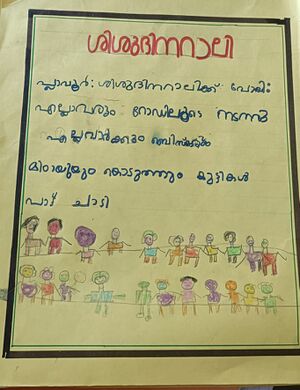 ശിശുദിനറാലി
പ്ലാവൂർ: ശിശുദിനറാലിക്ക് പോയി
എല്ലാവരും റോഡിലൂടെ നടന്നു
എല്ലവാർക്കും ബിസ്ക്കറ്റും
മിഠായിയും കൊടുത്തു കുട്ടികൾ
ചാടി